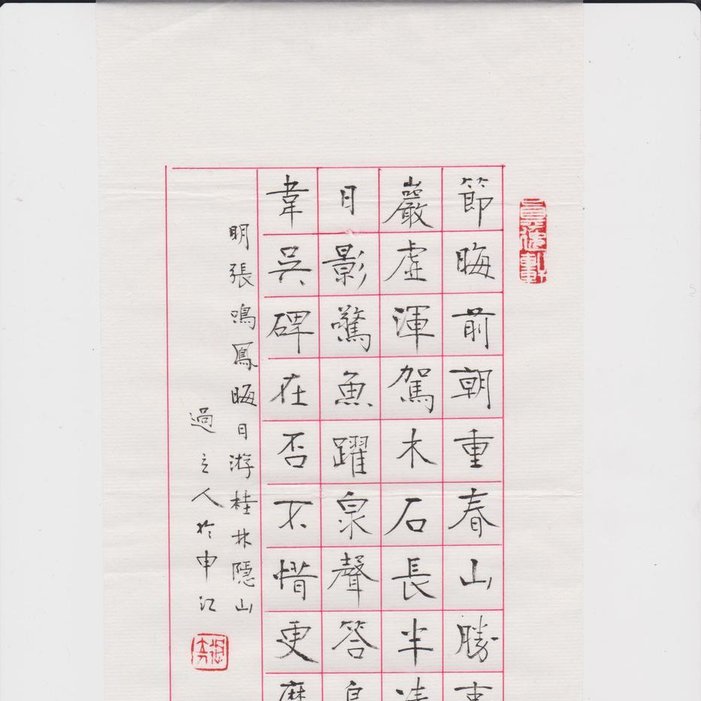 節晦前朝重春山勝
巖虛渾駕木石長半
日影驚魚躍泉聲答
韋吳碑在否不惜更
明張鳴鳳晦日游桂林隱山
過之人於申江